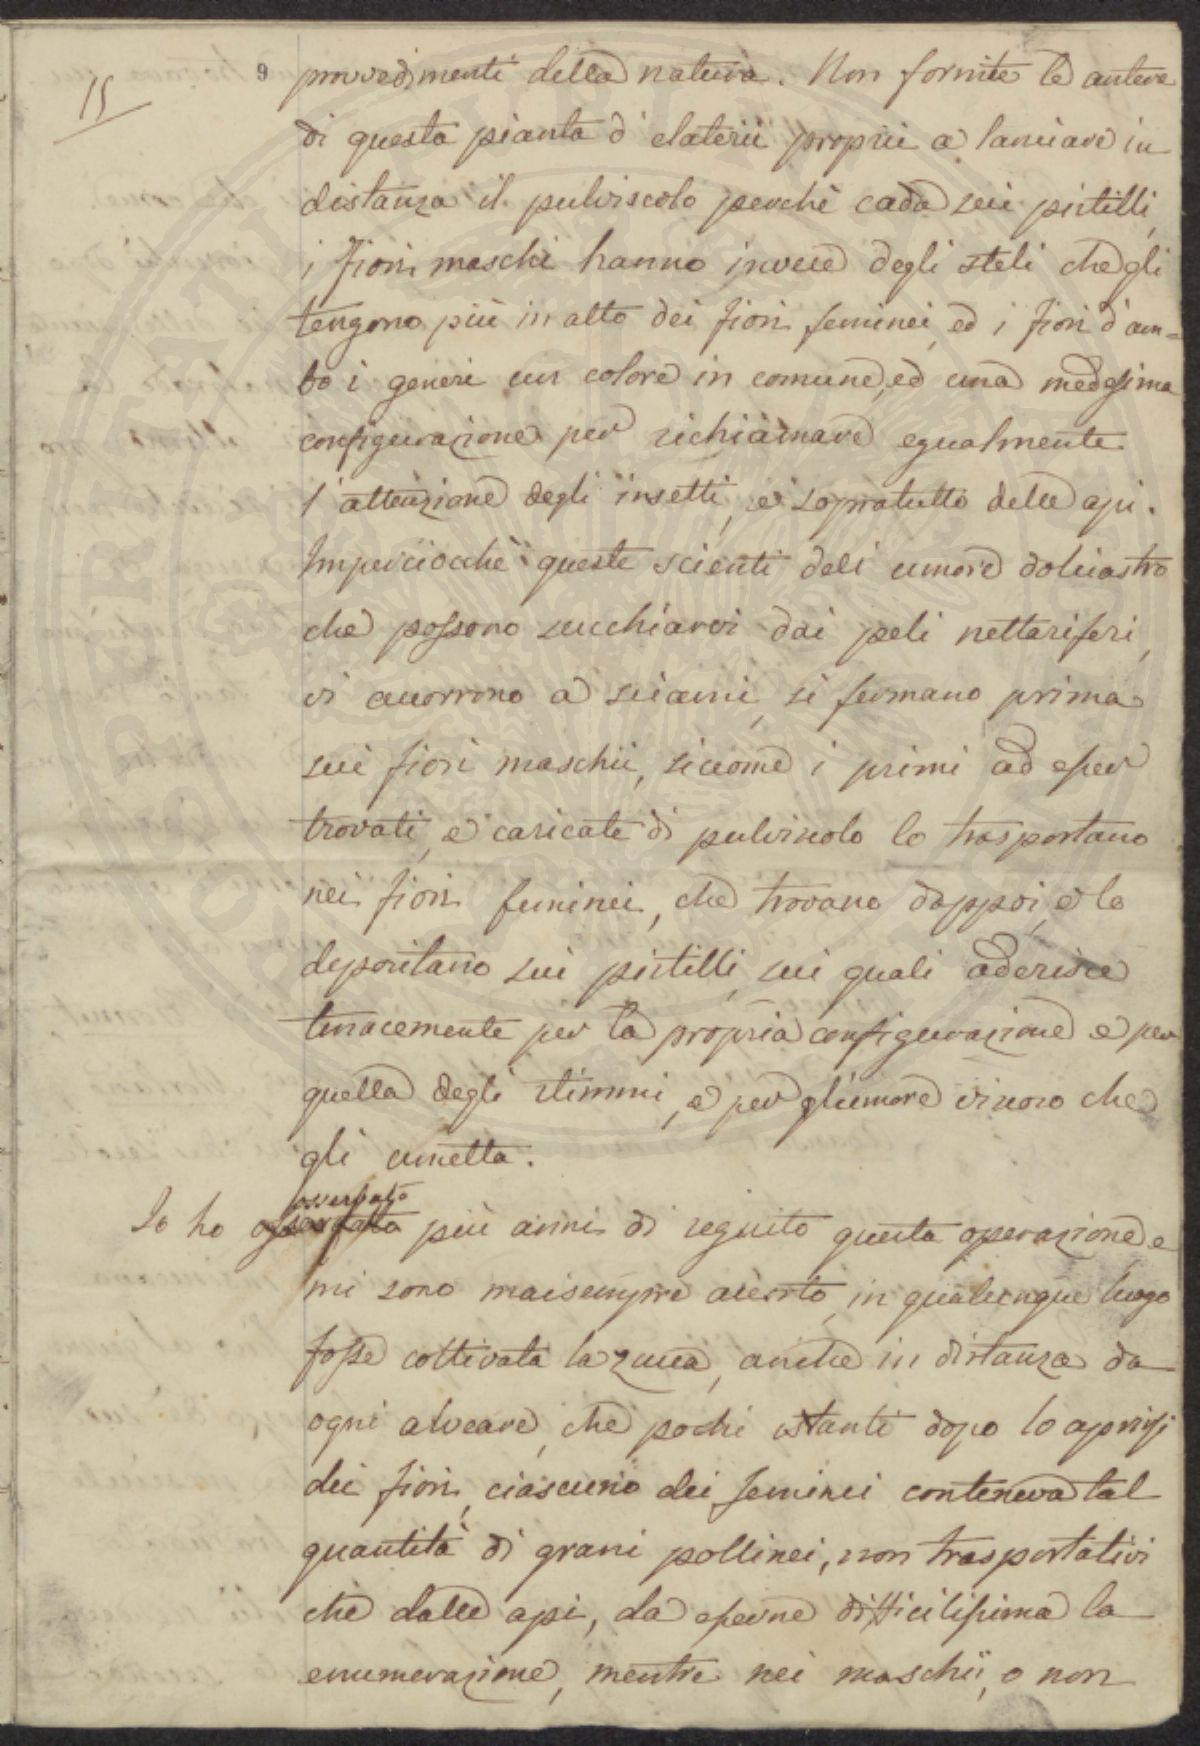 15
9
provvedimenti della natura. Non fornite le antere
di questa pianta d'elaterii proprii a lanciare in
distanza il pulviscolo perchè cada sui pistilli,
i fiori maschi hanno invece degli steli che gli
tengono più in alto dei fiori feminei, ed i fiori d'am=
bo i generi un colore in comune, ed una medesima
configurazione per richiamare egualmente
l'attenzione degli insetti, e sopratutto delle api.
Imperciocchè queste scienti del umore dolciastro
che possono succhiarvi dai peli nettariferi,
vi accorrono a sciami, si fermano prima
sui fiori maschii, siccome i primi ad esser
trovati, e caricate di pulvisolo lo trasportano
nei fiori feminei, che trovano dappoi, e lo
depositano sui pistilli, sui quali aderisce
tenacemente per la propria configurazione e per
quella degli stimmi, e per gl'umore vinoso che
gli umetta.
osservato
Io ho più anni di seguito questa operazione e
mi sono maisempre accerto, in qualunque luogo
fosse coltivata la zucca, anche in distanza da
ogni alveare, che pochi istanti dopo lo aprirsi
dei fiori, ciascuno dei feminei conteneva tal
quantità di grani pollinei, non trasportativi
che dalle api, da esserne difficilissima la
enumerazione, mentre nei maschii, o non